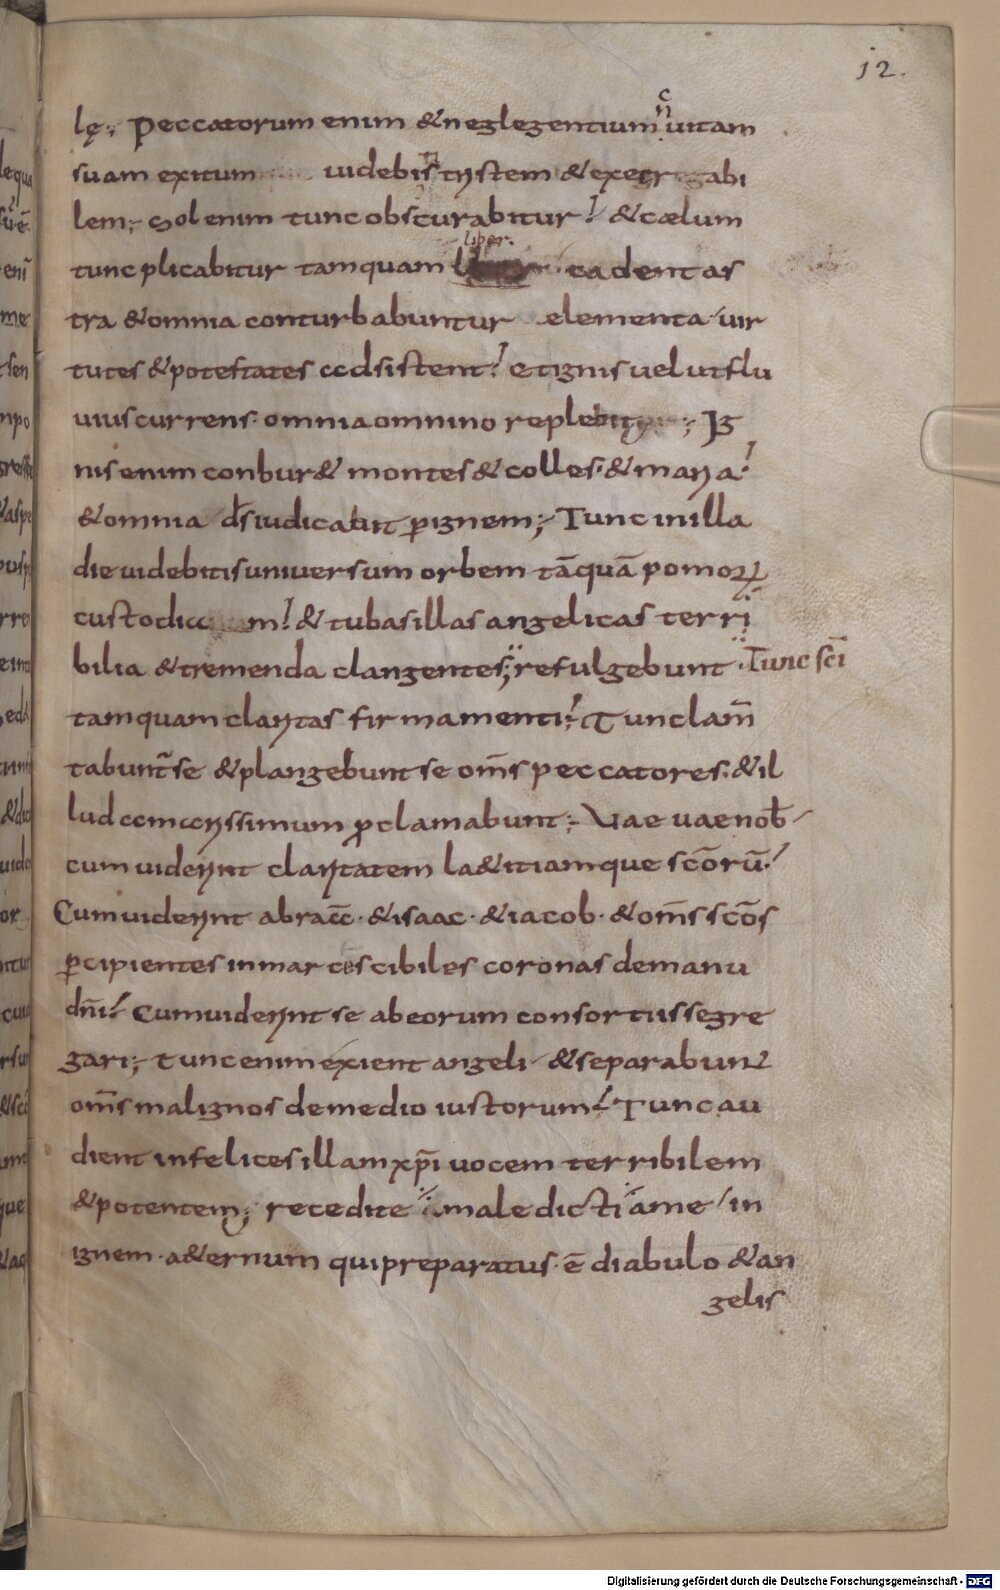 12.
lę; peccatorum enim & neglegentium uitam
suam exitum uidebis tristem & execrabi
lem; Sol enim tunc obscurabitur! & cælum
liber.
tunc plicabitur tamquam cadent as
tra & omnia conturbabuntur elementa uir
tutes & potestates adsistent! et ignis velut flu
uius currens. omnia omnino replebitur; Ig
nis enim conbur& montes & colles. & maria!
& omnia ds̄ iudicabit ꝑ ignem; Tunc in illa
die uidebitis universum orbem tāquā pomoꝝ
custodiam! & tubas illas angelicas terri
bilia & tremenda clangentes; refulgebunt Tunc sci̅
tamquam claritas firmamenti; Tunc lam̄
tabunt̄ se & plangebunt se om̄s peccatores. & il
lud amarissimum ꝓclamabunt; Vae uae nob̄
cum uiderint claritatem la&itiamque sc̄orū!
Cum uiderint abraā. & isaac. & iacob. & om̄s sc̄os
ꝑcipientes inmarcescibiles coronas de manu
dn̄i! Cum uiderint se ab eorum consortiis segre
gari; tunc enim exient angeli & separabunt
om̄s malignos de medio iustorum! Tunc au
dient infelices illam xp̄i uocem terribilem
& potentem; recedite maledicti a me in
ignem a&ernum qui preparatus ē diabulo & an
gelis
Digitalisierung gefördert durch die Deutsche Forschungsgemeinschaft - DFG